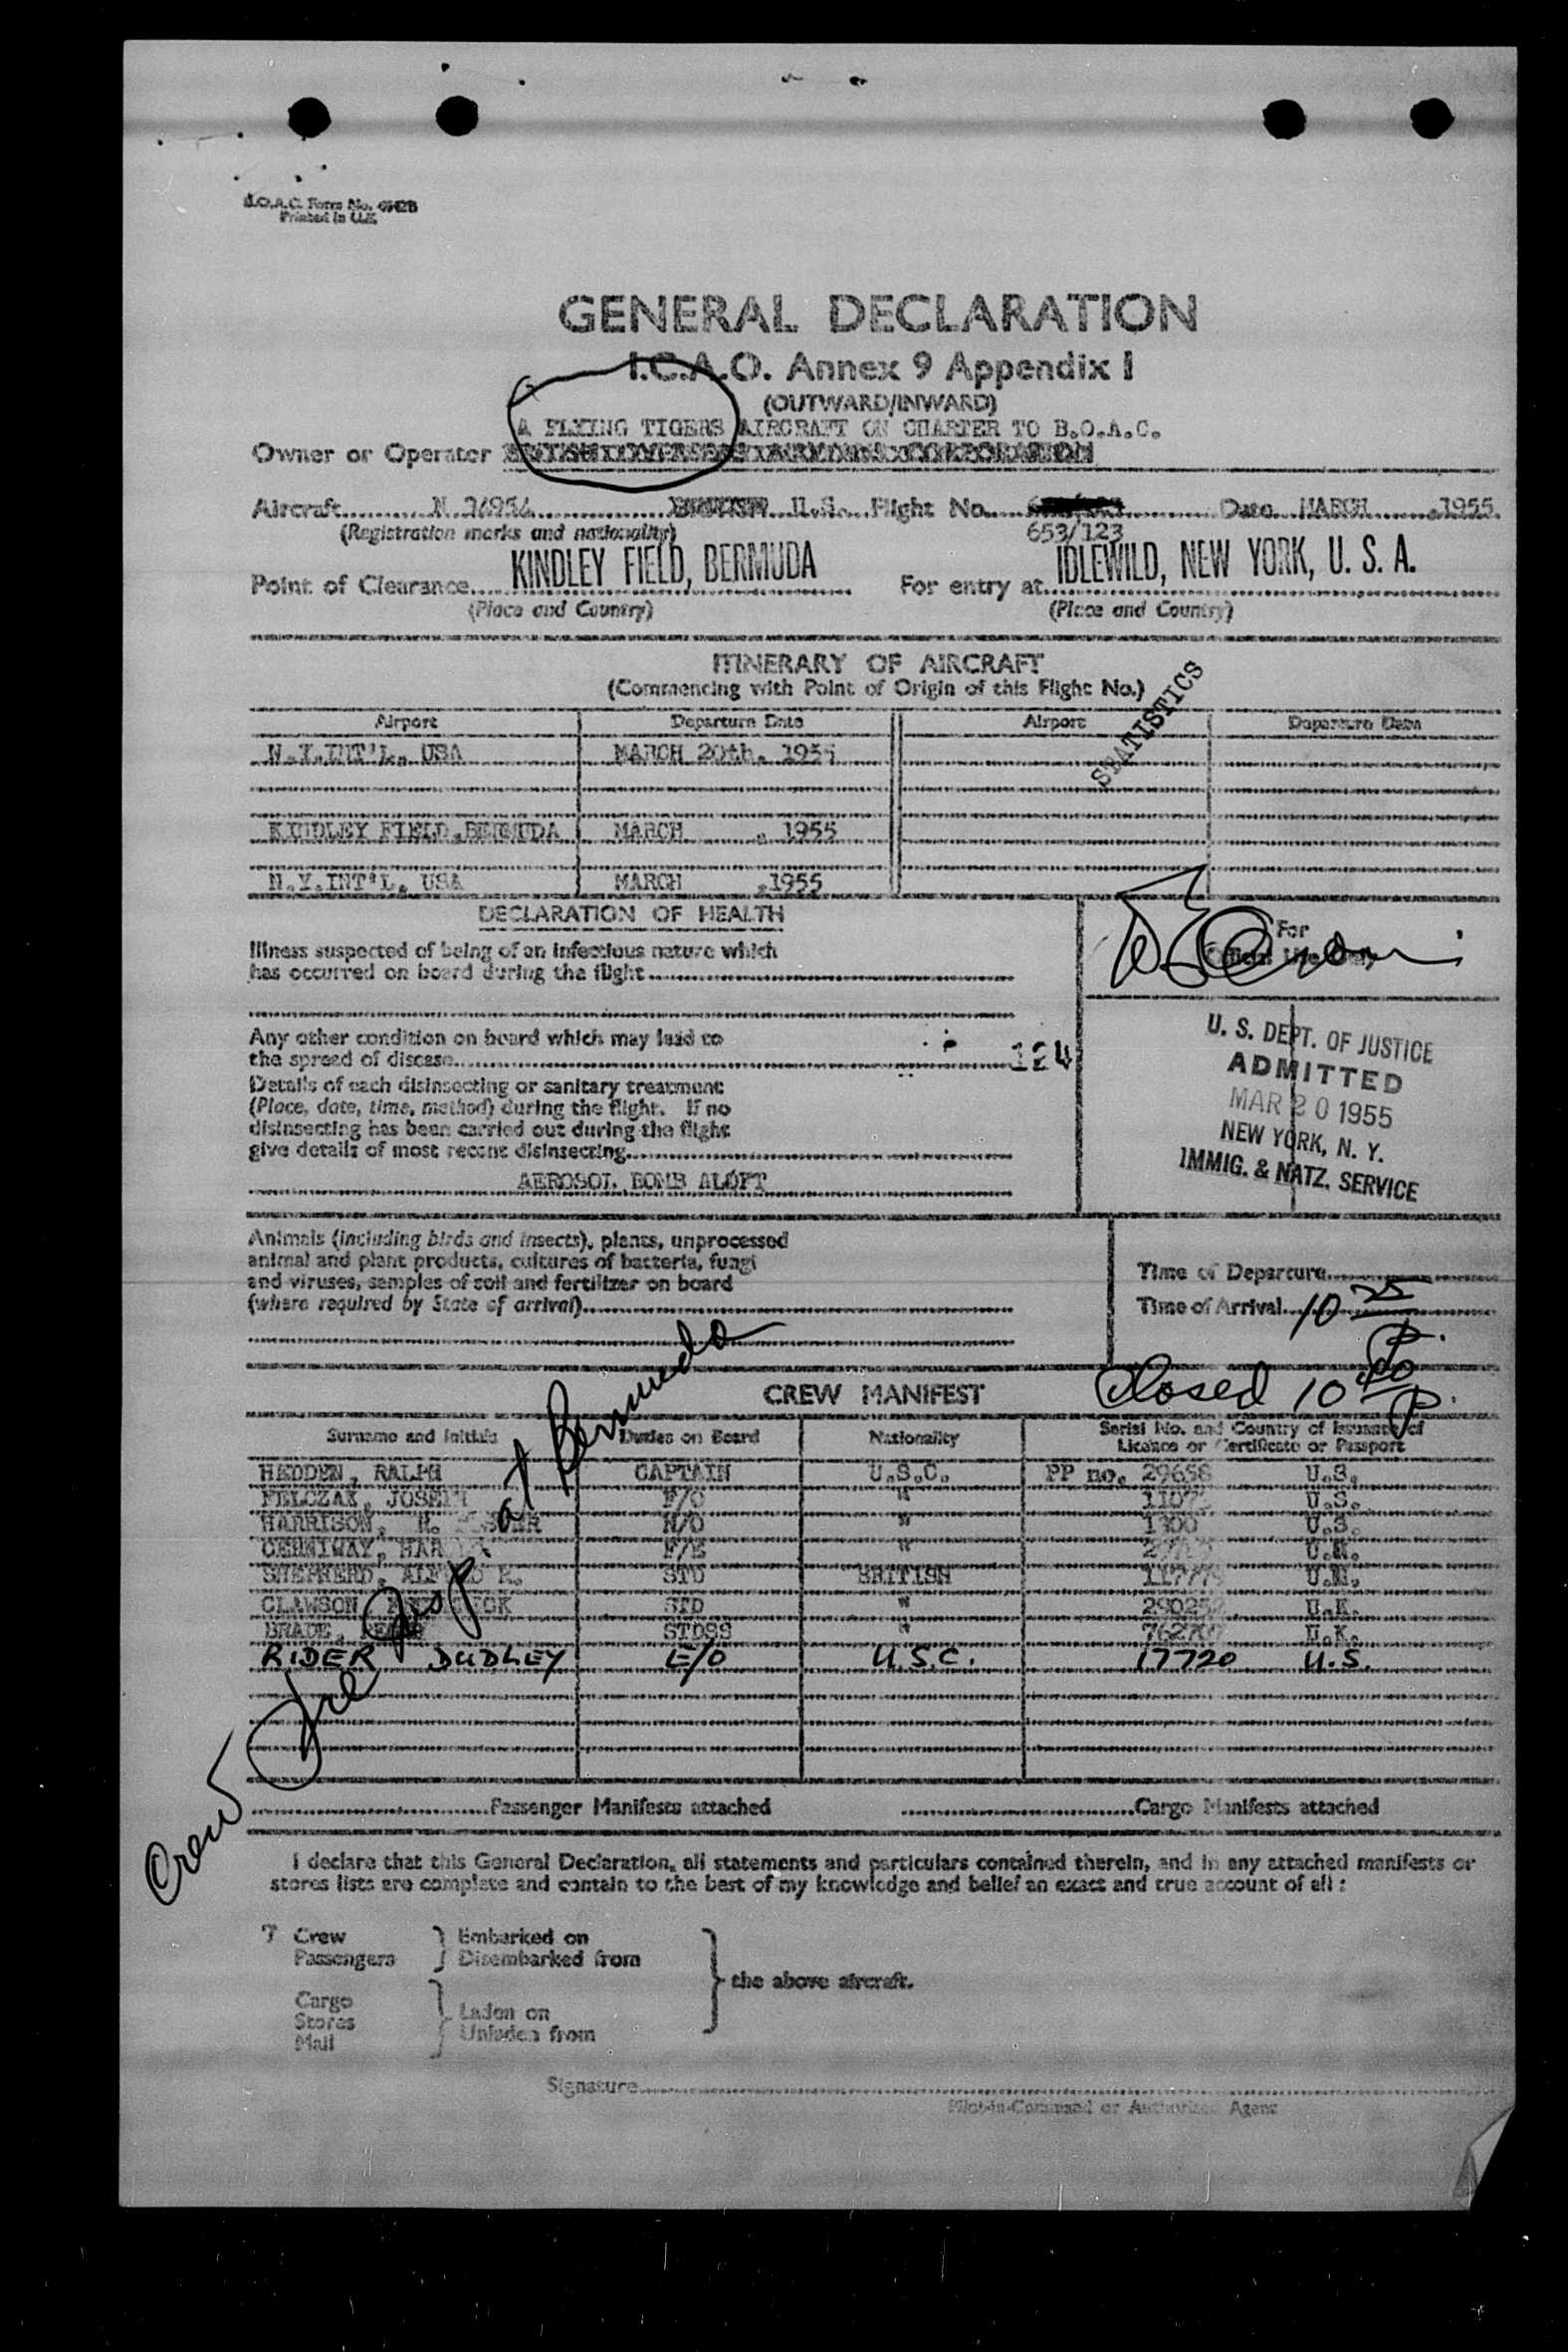 Printed in U.K.
GENERAL DECLARATION
I.C.A.O. Annex 9 Appendix I
(OUTWARD/INWARD)
A FLYING TIGERS AIRCRAFT ON CHARTER TO B.O.A.C.
Owner or Operator
Aircraft U.S. Flight No. Date MARCH 1955.
(Registration marks and nationality) 653/123
Point of Clearance KINDLEY FIELD, BERMUDA For entry at IDLEWILD, NEW YORK, U. S. A.
(Place and Country) (Place and Country)
ITINERARY OF AIRCRAFT
(Commencing with Point of Origin of this Flight No.)
STATISTICS
Airport Departure Date Airport Departure Date
N.Y.INT'L. USA MARCH 20th. 1955
KINDLEY FIELD,BERMUDA MARCH , 1955
N.Y.INT'L. USA MARCH ,1955
DECLARATION OF HEALTH
For
Illness suspected of being of an infectious nature which
has occurred on board during the flight
Any other condition on board which may lead to
the spread of disease 124
Details of each disinsecting or sanitary treatment
(Place, date, time, method) during the flight. If no
disinsecting has been carried out during the flight
give details of most recent disinsecting
AEROSOL BOMB ALOFT
U. S. DEPT. OF JUSTICE
ADMITTED
MAR 20 1955
NEW YORK, N. Y.
IMMIG. & NATZ. SERVICE
Animals (including birds and insects), plants, unprocessed
animal and plant products, cultures of bacteria, fungi
and viruses, samples of soil and fertilizer on board
(where required by State of arrival)
Time of Departure
Time of Arrival 10 25 P.
Closed 10 50 P.
CREW MANIFEST
Surname and Initials Duties on Board Nationality Serial No. and Country of Issuance of
Licence or Certificate or Passport
HEDDEN, RALPH CAPTAIN U.S.C. PP no. 29658 U.S.
FELCZAK, JOSEPH F/O " U.S.
HARRISON, N/O " U.S.
F/E "
SHEPHERD, STD BRITISH
CLAWSON, STD " U.K.
BRADE, STDSS " U.K.
RIDER DUDLEY E/O U.S.C. 17720 U.S.
Crew at Bermuda
Passenger Manifests attached Cargo Manifests attached
I declare that this General Declaration, all statements and particulars contained therein, and in any attached manifests or
stores lists are complete and contain to the best of my knowledge and belief an exact and true account of all :
7 Crew Embarked on
Passengers Disembarked from
the above aircraft.
Cargo
Stores Laden on
Mail Unladen from
Signature
Pilot-in-Command or Authorized Agent